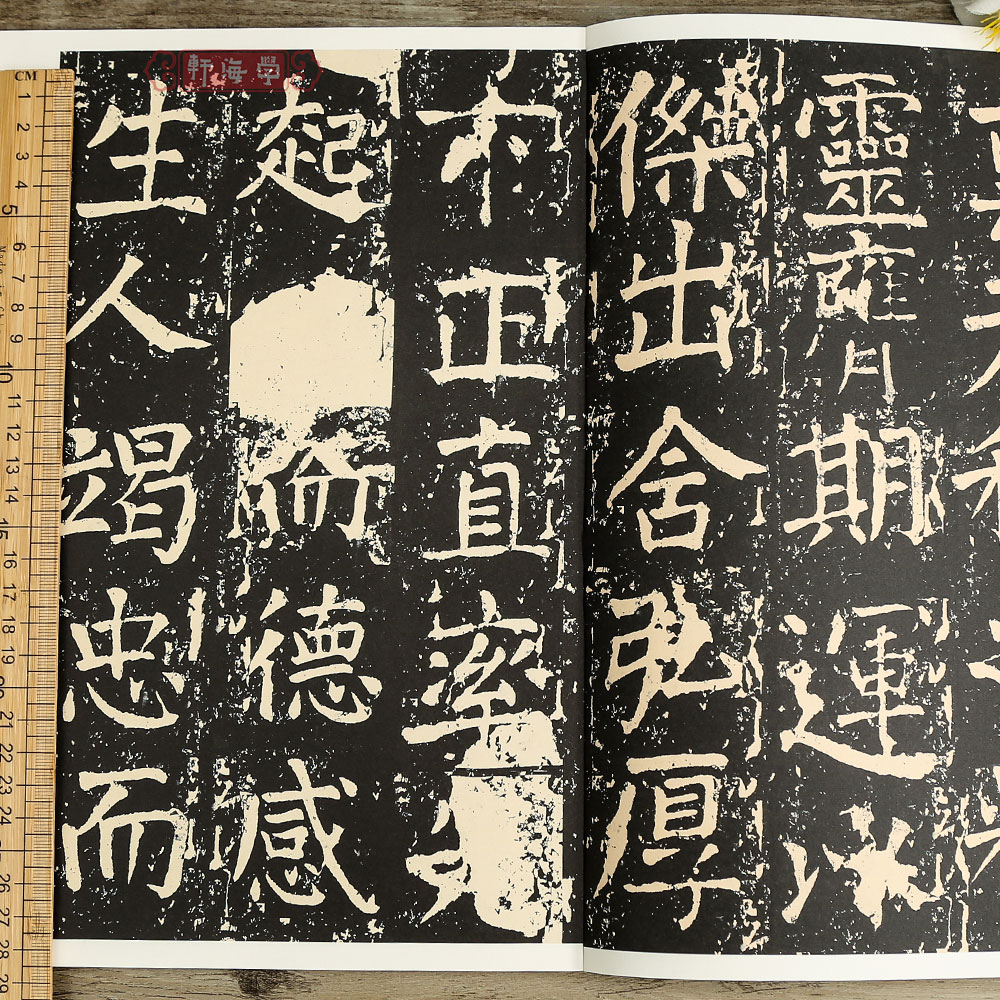 學海軒
靈月期運
傑出舍弘厚
正直率
起而德感
生人竭忠而
CM
1
2
3
4
5
6
7
8
9
10
11
12
13
14
15
16
17
18
19
20
21
22
23
24
26
27
28
29